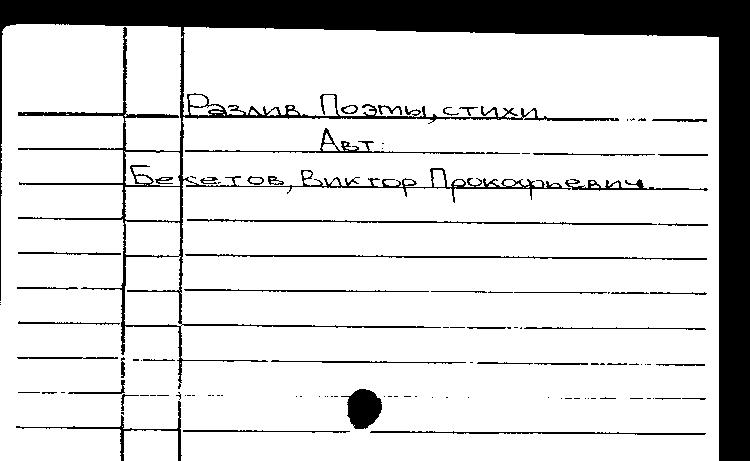 Разлив. Поэты, стихи.
Авт.:
Бекетов, Виктор Прокофьевич.